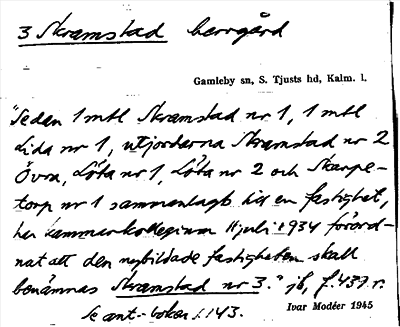 3 Skramstad herrgård
Gamleby sn, S. Tjusts hd, Kalm. l.
"Sedan 1 mtl Skramstad nr 1, 1 mtl
Lida nr 1, utjordarna Skramstad nr 2
Övra, Löta nr 1, Löta nr 2 och Skarpe-
torp nr 1 sammanlagts till en fastighet,
har kammarkollegium 11 juli 1934 förord-
nat att den nybildade fastigheten skall
benämnas Skramstad nr 3." jb, f. 439 r.
Se ant.-boken s. 143.
Ivar Modéer 1945